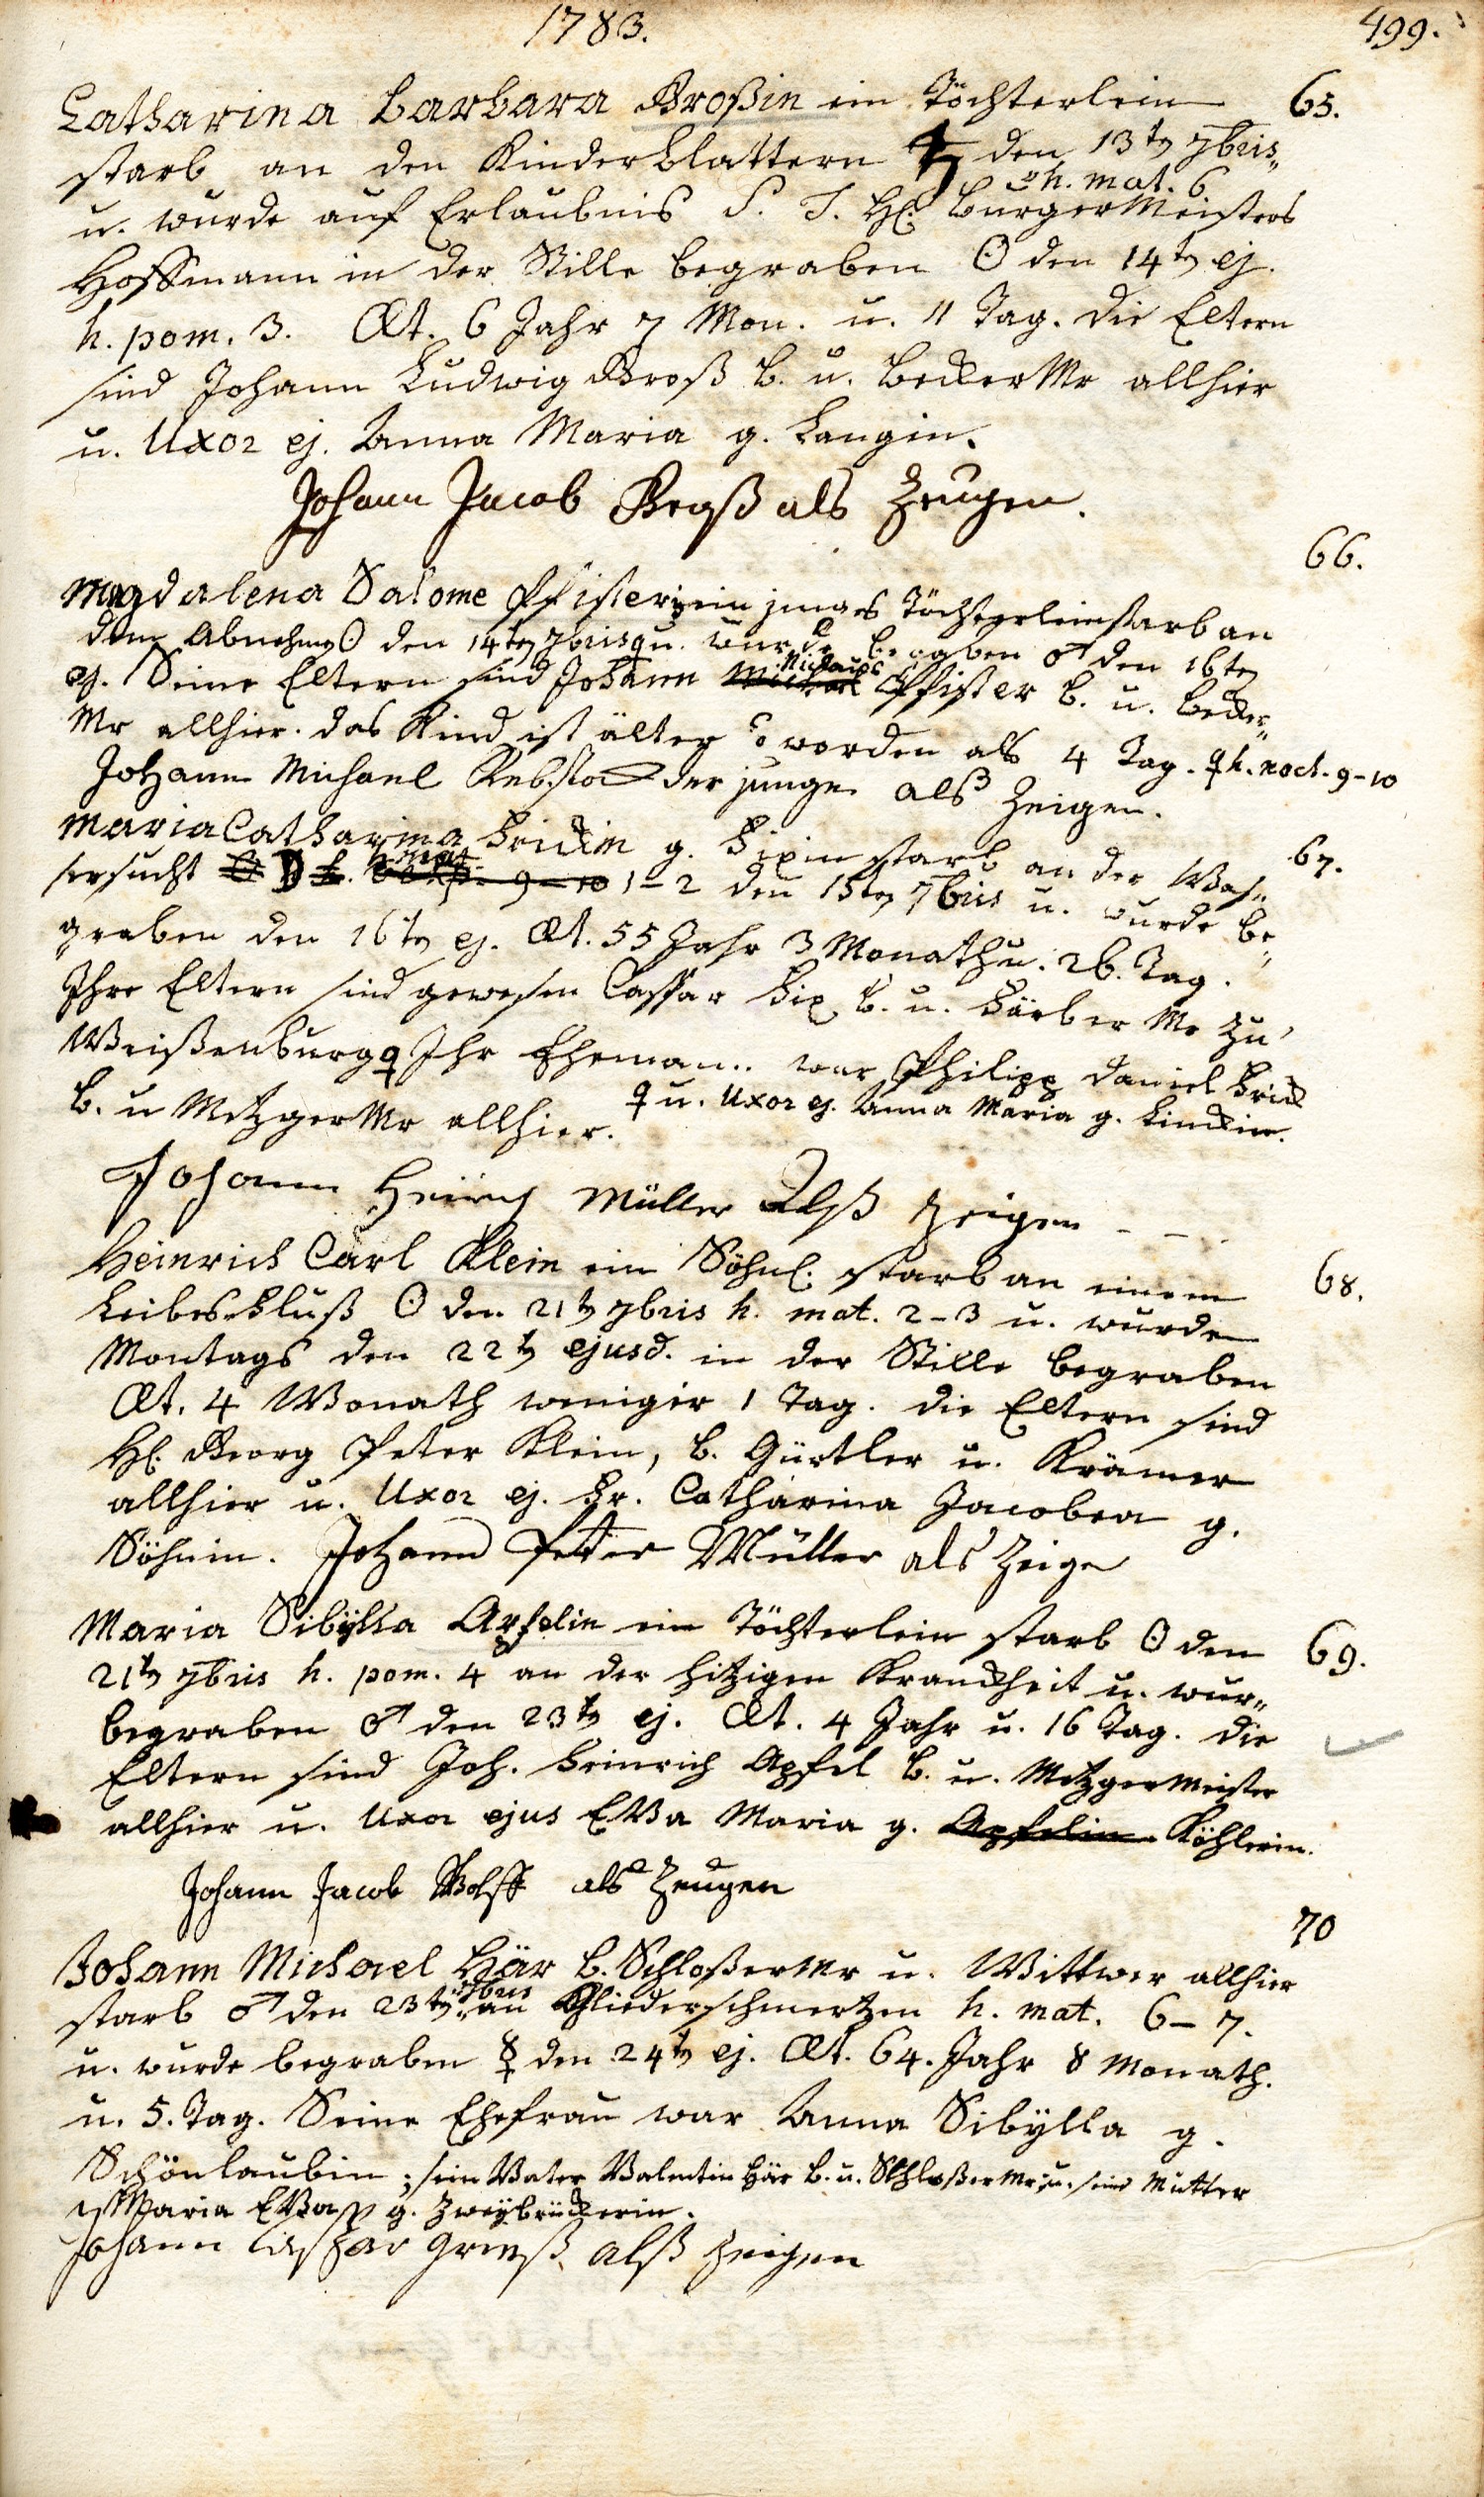 1783.
499.
Catharina Barbara Großin ein Töchterlein 65.
starb an den Kinderblattern ♄ den 13tn 7bris„
h. mat. 6
u. wurde auf Erlaubnis S. T. H. BurgerMeisters
Hoffmann in der Stille begraben ☉ den 14tn ej.
h. pom. 3. Æt. 6 Jahr 7 Mon. u. 11 Tag. Die Eltern
sind Johann Ludwig Groß b. u. Becker Mr allhier
u. Uxor ej. Anna Maria g. Langin.
Johann Jacob Groß als Zeugen.
66.
Magdalena Salome Pfisterin ein junges Töchterlein starb an
dem Abnehmen ☉ den 14tn 7bris ♀ u. wurde begraben ♂ den 16tn
ej. Seine Eltern sind Johann Michael Nicolaus Pfister b. u. Becker„
Mr allhier. das Kind ist älter worden als 4 Tag. ♀ h. noct. 9-10
Johann Michael Rebstock der junge alß Zeigen.
Maria Catharina Frickin g. Bixin starb an der Was„ 67.
sersucht ☉ ☽ h. mat. 9-10 1-2 den 15tn 7bris u. wurde be„
graben den 16tn ej. Æt. 55 Jahr 3 Monath u. 26. Tag.
Ihre Eltern sind gewesen Casspar Bix b. u. Färber Mr zu
Weißenburg ♀ Ihr Ehemann war Philipp Daniel Frick
b. u Metzger Mr allhier. ♀ u. Uxor ej. Anna Maria g. Linckin.
Johann Heinrich Müller Alß Zeigen
Heinrich Carl Klein ein Söhnl. starb an einem 68.
Leibes-Fluß ☉ den 21tn 7bris h. mat. 2-3 u. wurde
Montags den 22tn ejusd. in der Stille begraben
Æt. 4 Monath weniger 1 Tag. Die Eltern sind
H. Georg Peter Klein, b. Gürtler u. Krämer
allhier u. Uxor ej. Fr. Catharina Jacobea g.
Söhnin. Johann Peter Müller als Zeige
Maria Sibylla Apfelin ein Töchterlein starb ☉ den 69.
21tn 7bris h. pom. 4 an der hitzigen Kranckheit u. wur„
begraben ♂ den 23tn ej. Æt. 4 Jahr u. 16 Tag. Die
Eltern sind Joh. Heinrich Apfel b. u. Metzgermeister
allhier u. Uxor ejus Eva Maria g. Apfelin Köhlerin.
Johann Jacob Wolff als Zeugen
70
Johann Michael Bär b. Schloßer Mr u. Wittwer allhier
starb ♂ den 23tn 7bris an Gliederschmertzen h. mat. 6-7.
u. wurde begraben ☿ den 24tn ej. Æt. 64. Jahr 8 Monath.
u. 5. Tag. Seine Ehefrau war Anna Sibylla g.
Schönlaubin; sein Vater Valentin Bär b. u. Schloßer Mr u. seine Mutter
Maria Eva g. Zweybrückerin.
Johann Caspar Grieß alß Zeigen